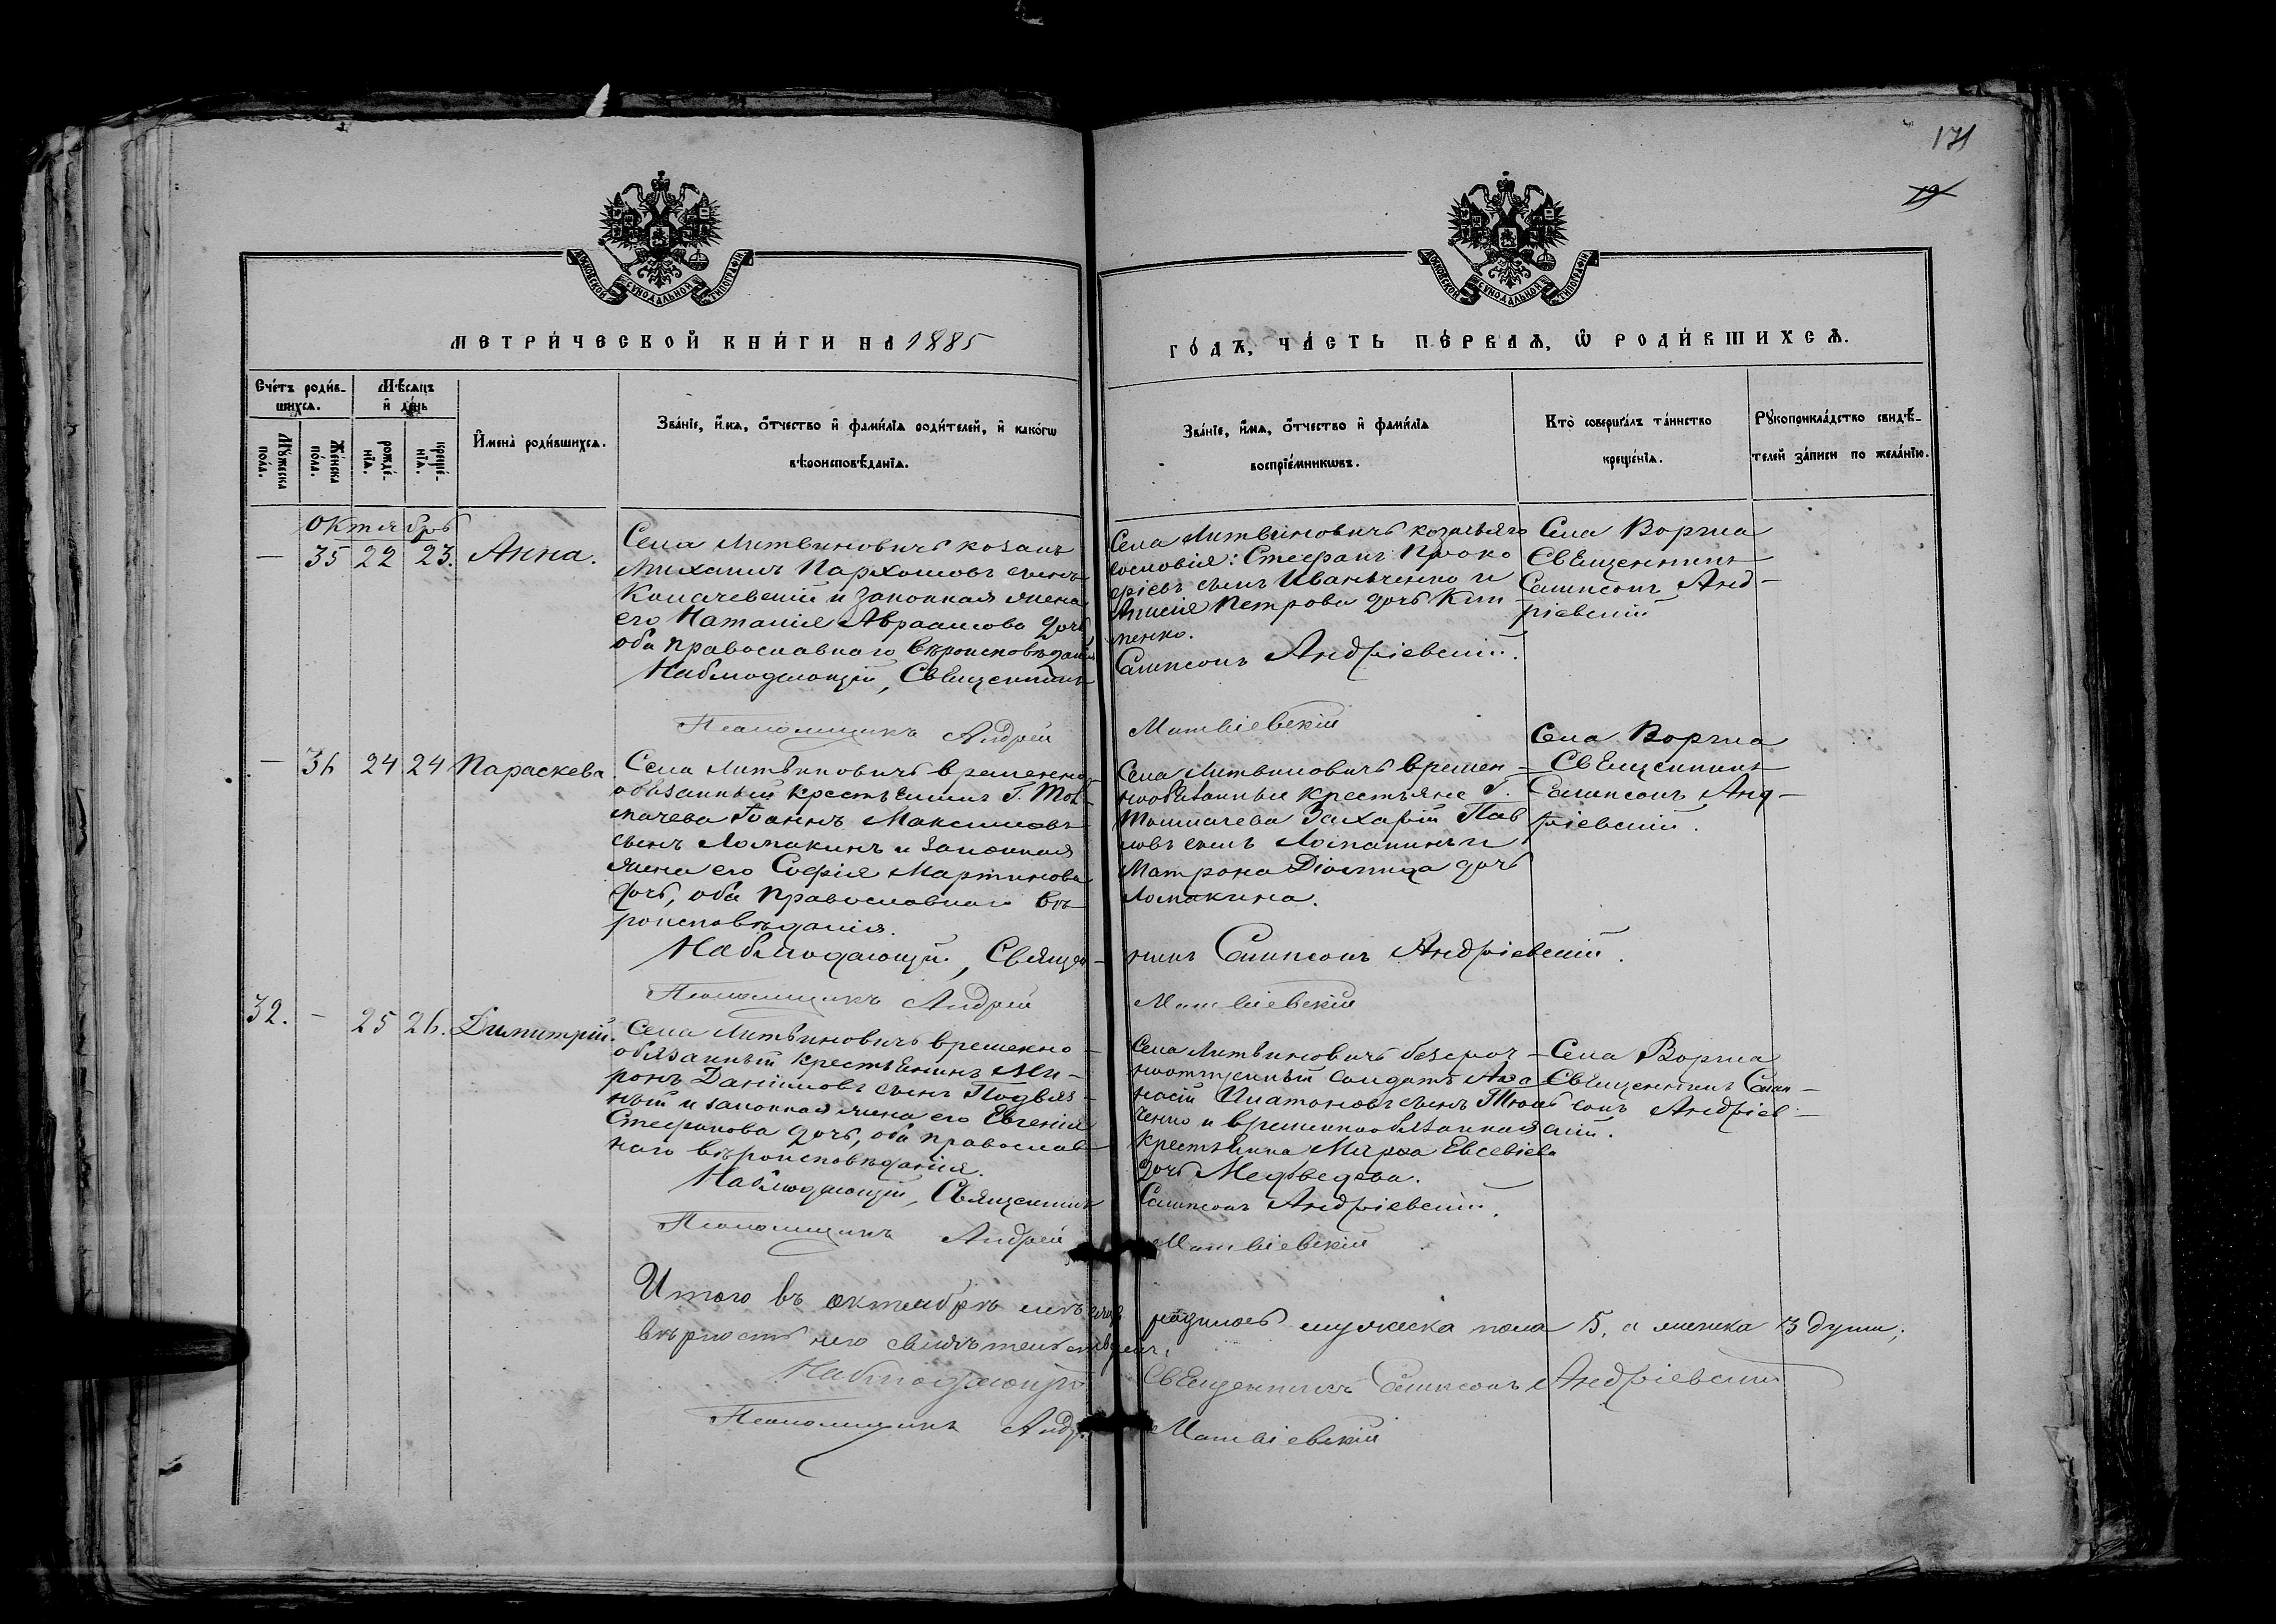 171
19
МОСКОВСКОЙ СѴНОДАЛЬНОЙ ТИПОГРАФІИ
МОСКОВСКОЙ СѴНОДАЛЬНОЙ ТИПОГРАФІИ
МЕТРИ́ЧЕСКОЙ КНИ́ГИ НА 1885
ГО́ДЪ, ЧА́СТЬ ПЕ́РВАѦ, Ѡ҆ РОДИ́ВШИХСѦ.
Сче́тъ роди́в-
шихсѧ.
Мѣ́сѧцъ
и҆ де́нь
Мꙋ́жеска
по́ла.
Же́нска
по́ла.
рожде́-
нїѧ.
креще́-
нїѧ.
И҆мена̀ роди́вшихсѧ.
Зва́нїе, и҆́мѧ, ѻ҆́тчество и҆ фами́лїѧ роди́телей, и҆ како́гѡ
вѣроисповѣ́данїѧ.
Зва́нїе, и҆́мѧ, ѻ҆́тчество и҆ фами́лїѧ
воспрїе́мникѡвъ.
Кто̀ соверша́лъ та́инство
креще́нїѧ.
Рꙋкоприкла́дство свидѣ́-
телей за́писи по жела́нїю.
Октябрь
— 35 22 23. Анна.
Села Литвиновичъ козакъ
Михаилъ Пархомовъ сынъ
Колачевскій и законная жена
его Наталія Авраамова дочь
оба православнаго вѣроисповѣданія
Наблюдающій, Священникъ
Псаломщикъ Андрей
Села Литвиновичъ козачьяго
сословія: Стефанъ Проко
фіевъ сынъ Иванченко и
Анисія Петрова дочь Кли
менко.
Сампсонъ Андріевскій.
Матвіевскій
Села Воргла
Священникъ
Сампсонъ Анд-
ріевскій
— 36 24 24 Параскева
Села Литвиновичъ временно-
обязанный крестьянинъ Г. Тол-
мачева Іоаннъ Максимовъ
сынъ Ломакинъ и законная
жена его Софія Мартинова
дочь, оба православнаго вѣ-
роисповѣданія.
Наблюдающій, Священ-
Псаломщикъ Андрей
Села Литвиновичъ времен-
нообязанные крестьяне Г.
Толмачева Захарій Пав
ловъ сынъ Ломакинъ и
Матрона Діомида дочь
Ломакина.
никъ Сампсонъ Андріевскій.
Матвіевскій
Села Воргла
Священникъ
Сампсонъ Анд-
ріевскій.
32. — 25 26. Димитрій.
Села Литвиновичъ временно-
обязанный крестьянинъ Ми-
ронъ Даніиловъ сынъ Подвяз-
ный и законная жена его Евгенія
Стефанова дочь, оба православ-
наго вѣроисповѣданія.
Наблюдающій, Священникъ
Псаломщикъ Андрей
Села Литвиновичъ безсроч-
ноотпускный солдатъ Афа
насій Платоновъ сынъ
ченко и временнообязанная
крестьянка Марфа Евсевіева
дочь Медведева.
Сампсонъ Андріевскій.
Матвіевскій
Села Воргла
Священникъ Самп-
сонъ Андріев-
скій.
Итого въ октябрѣ мѣсяцѣ родилось мужеска пола 5, а женска 3 души;
вѣрность чего свидѣтельствуемъ.
Наблюдающій Священникъ Сампсонъ Андріевскій
Псаломщикъ Андр. Матвіевскій